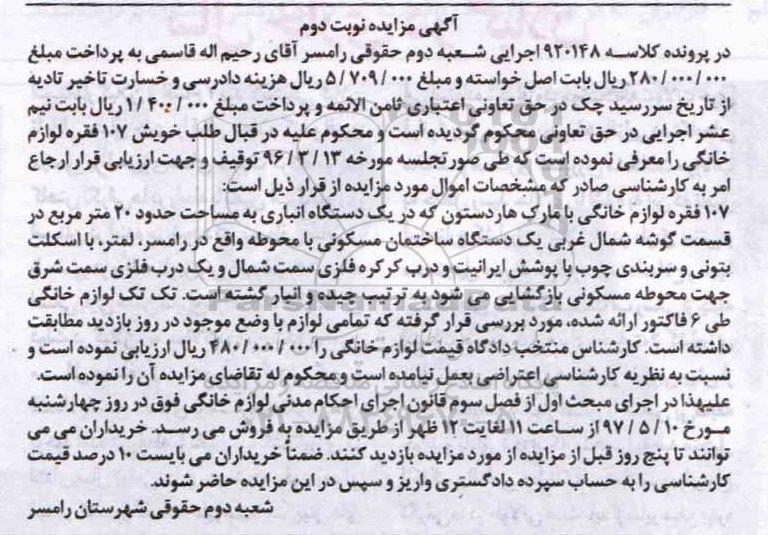 آگهی مزایده نوبت دوم
در پرونده کلاسه ۹۲۰۱۴۸ اجرایی شعبه دوم حقوقی رامسر آقای رحیم اله قاسمی به پرداخت مبلغ
۲۸۰/۰۰۰/۰۰۰ ریال بابت اصل خواسته و مبلغ ۵/۷۰۹/۰۰۰ ریال هزینه دادرسی و خسارت تاخیر تادیه
از تاریخ سررسید چک در حق تعاونی اعتباری ثامن الائمه و پرداخت مبلغ ۱/۴۰۰/۰۰۰ ریال بابت نیم
عشر اجرایی در حق تعاونی محکوم گردیده است و محکوم علیه در قبال طلب خویش ۱۰۷ فقره لوازم
خانگی را معرفی نموده است که طی صورتجلسه مورخه ۹۶/۳/۱۳ توقیف و جهت ارزیابی قرار ارجاع
امر به کارشناسی صادر که مشخصات اموال مورد مزایده از قرار ذیل است:
۱۰۷ فقره لوازم خانگی با مارک هاردستون که در یک دستگاه انباری به مساحت حدود ۲۰ متر مربع در
قسمت گوشه شمال غربی یک دستگاه ساختمان مسکونی با محوطه واقع در رامسر، لمتر، با اسکلت
بتونی و سربندی چوب با پوشش ایرانیت و درب کرکره فلزی سمت شمال و یک درب فلزی سمت شرق
جهت محوطه مسکونی بازگشایی می شود به ترتیب چیده و انبار گشته است. تک تک لوازم خانگی
طی ۶ فاکتور ارائه شده، مورد بررسی قرار گرفته که تمامی لوازم با وضع موجود در روز بازدید مطابقت
داشته است. کارشناس منتخب دادگاه قیمت لوازم خانگی را ۴۸۰/۰۰۰/۰۰۰ ریال ارزیابی نموده است و
نسبت به نظریه کارشناسی اعتراضی بعمل نیامده است و محکوم له تقاضای مزایده آن را نموده است.
علیهذا در اجرای مبحث اول از فصل سوم قانون اجرای احکام مدنی لوازم خانگی فوق در روز چهارشنبه
مورخ ۹۷/۵/۱۰ از ساعت ۱۱ لغایت ۱۲ ظهر از طریق مزایده به فروش می رسد. خریداران می می
توانند تا پنج روز قبل از مزایده از مورد مزایده بازدید کنند. ضمناً خریداران می بایست ۱۰ درصد قیمت
کارشناسی را به حساب سپرده دادگستری واریز و سپس در این مزایده حاضر شوند.
شعبه دوم حقوقی شهرستان رامسر
ParsNamadData